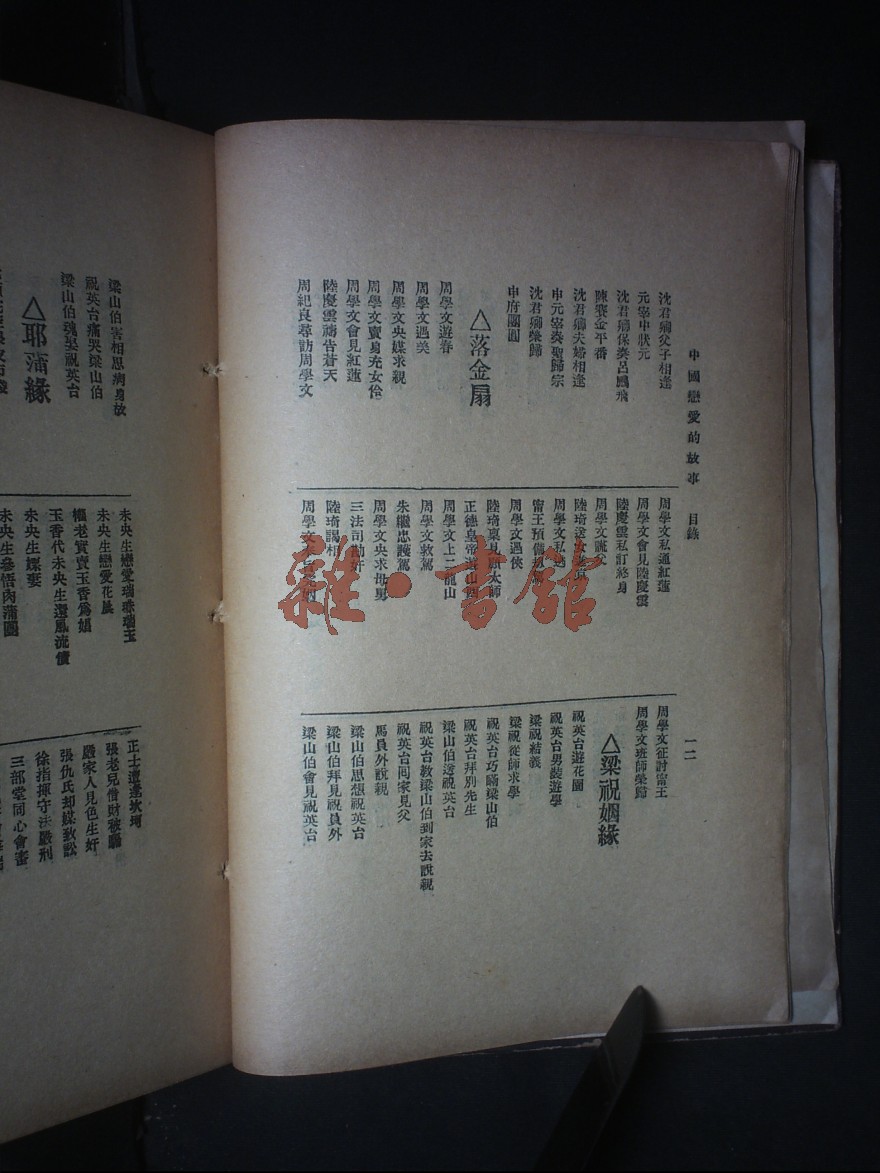 中國戀愛的故事 目錄
一二
沈君卿父子相逢
元宰中狀元
沈君卿保奏呂鵬飛
陳娶金平番
沈君卿夫婦相逢
申元宰奏聖歸宗
沈君卿榮歸
申府團圓
△落金扇
周學文遊春
周學文遇美
周學文央媒求親
周學文賣身充女伶
周學文會見紅蓮
陸慶雲禱告蒼天
周紀良尋訪周學文
周學文私通紅蓮
周學文會見陸慶雲
陸慶雲私訂終身
周學文
陸琦送女進京
周學文私逃
甯王預備
周學文遇俠
陸琦稟見顧太師
正德皇帝遊山
周學文上二龍山
周學文救駕
朱繼忠護駕
周學文央求母舅
三法司勘奸
陸琦謁相
周學文
周學文征討甯王
周學文班師榮歸
△梁祝姻緣
祝英台遊花園
祝英台男裝遊學
梁祝結義
梁祝從師求學
祝英台巧瞞梁山伯
祝英台拜別先生
梁山伯送祝英台
祝英台教梁山伯到家去說親
祝英台回家見父
馬員外說親
梁山伯思想祝英台
梁山伯拜見祝員外
梁山伯會見祝英台
梁山伯害相思病身故
祝英台痛哭梁山伯
梁山伯瑰娶祝英台
△耶蒲緣
未央生戀愛瑞珠瑞玉
未央生戀愛花晨
權老實賣玉香為娼
玉香代未央生還風流債
未央生嫖妻
未央生參悟肉蒲團
正士遭逢坎坷
張老兒借財被騙
嚴家人見色生奸
張仇氏却媒致訟
徐指揮守法嚴刑
三部堂同心會審
雜·書館